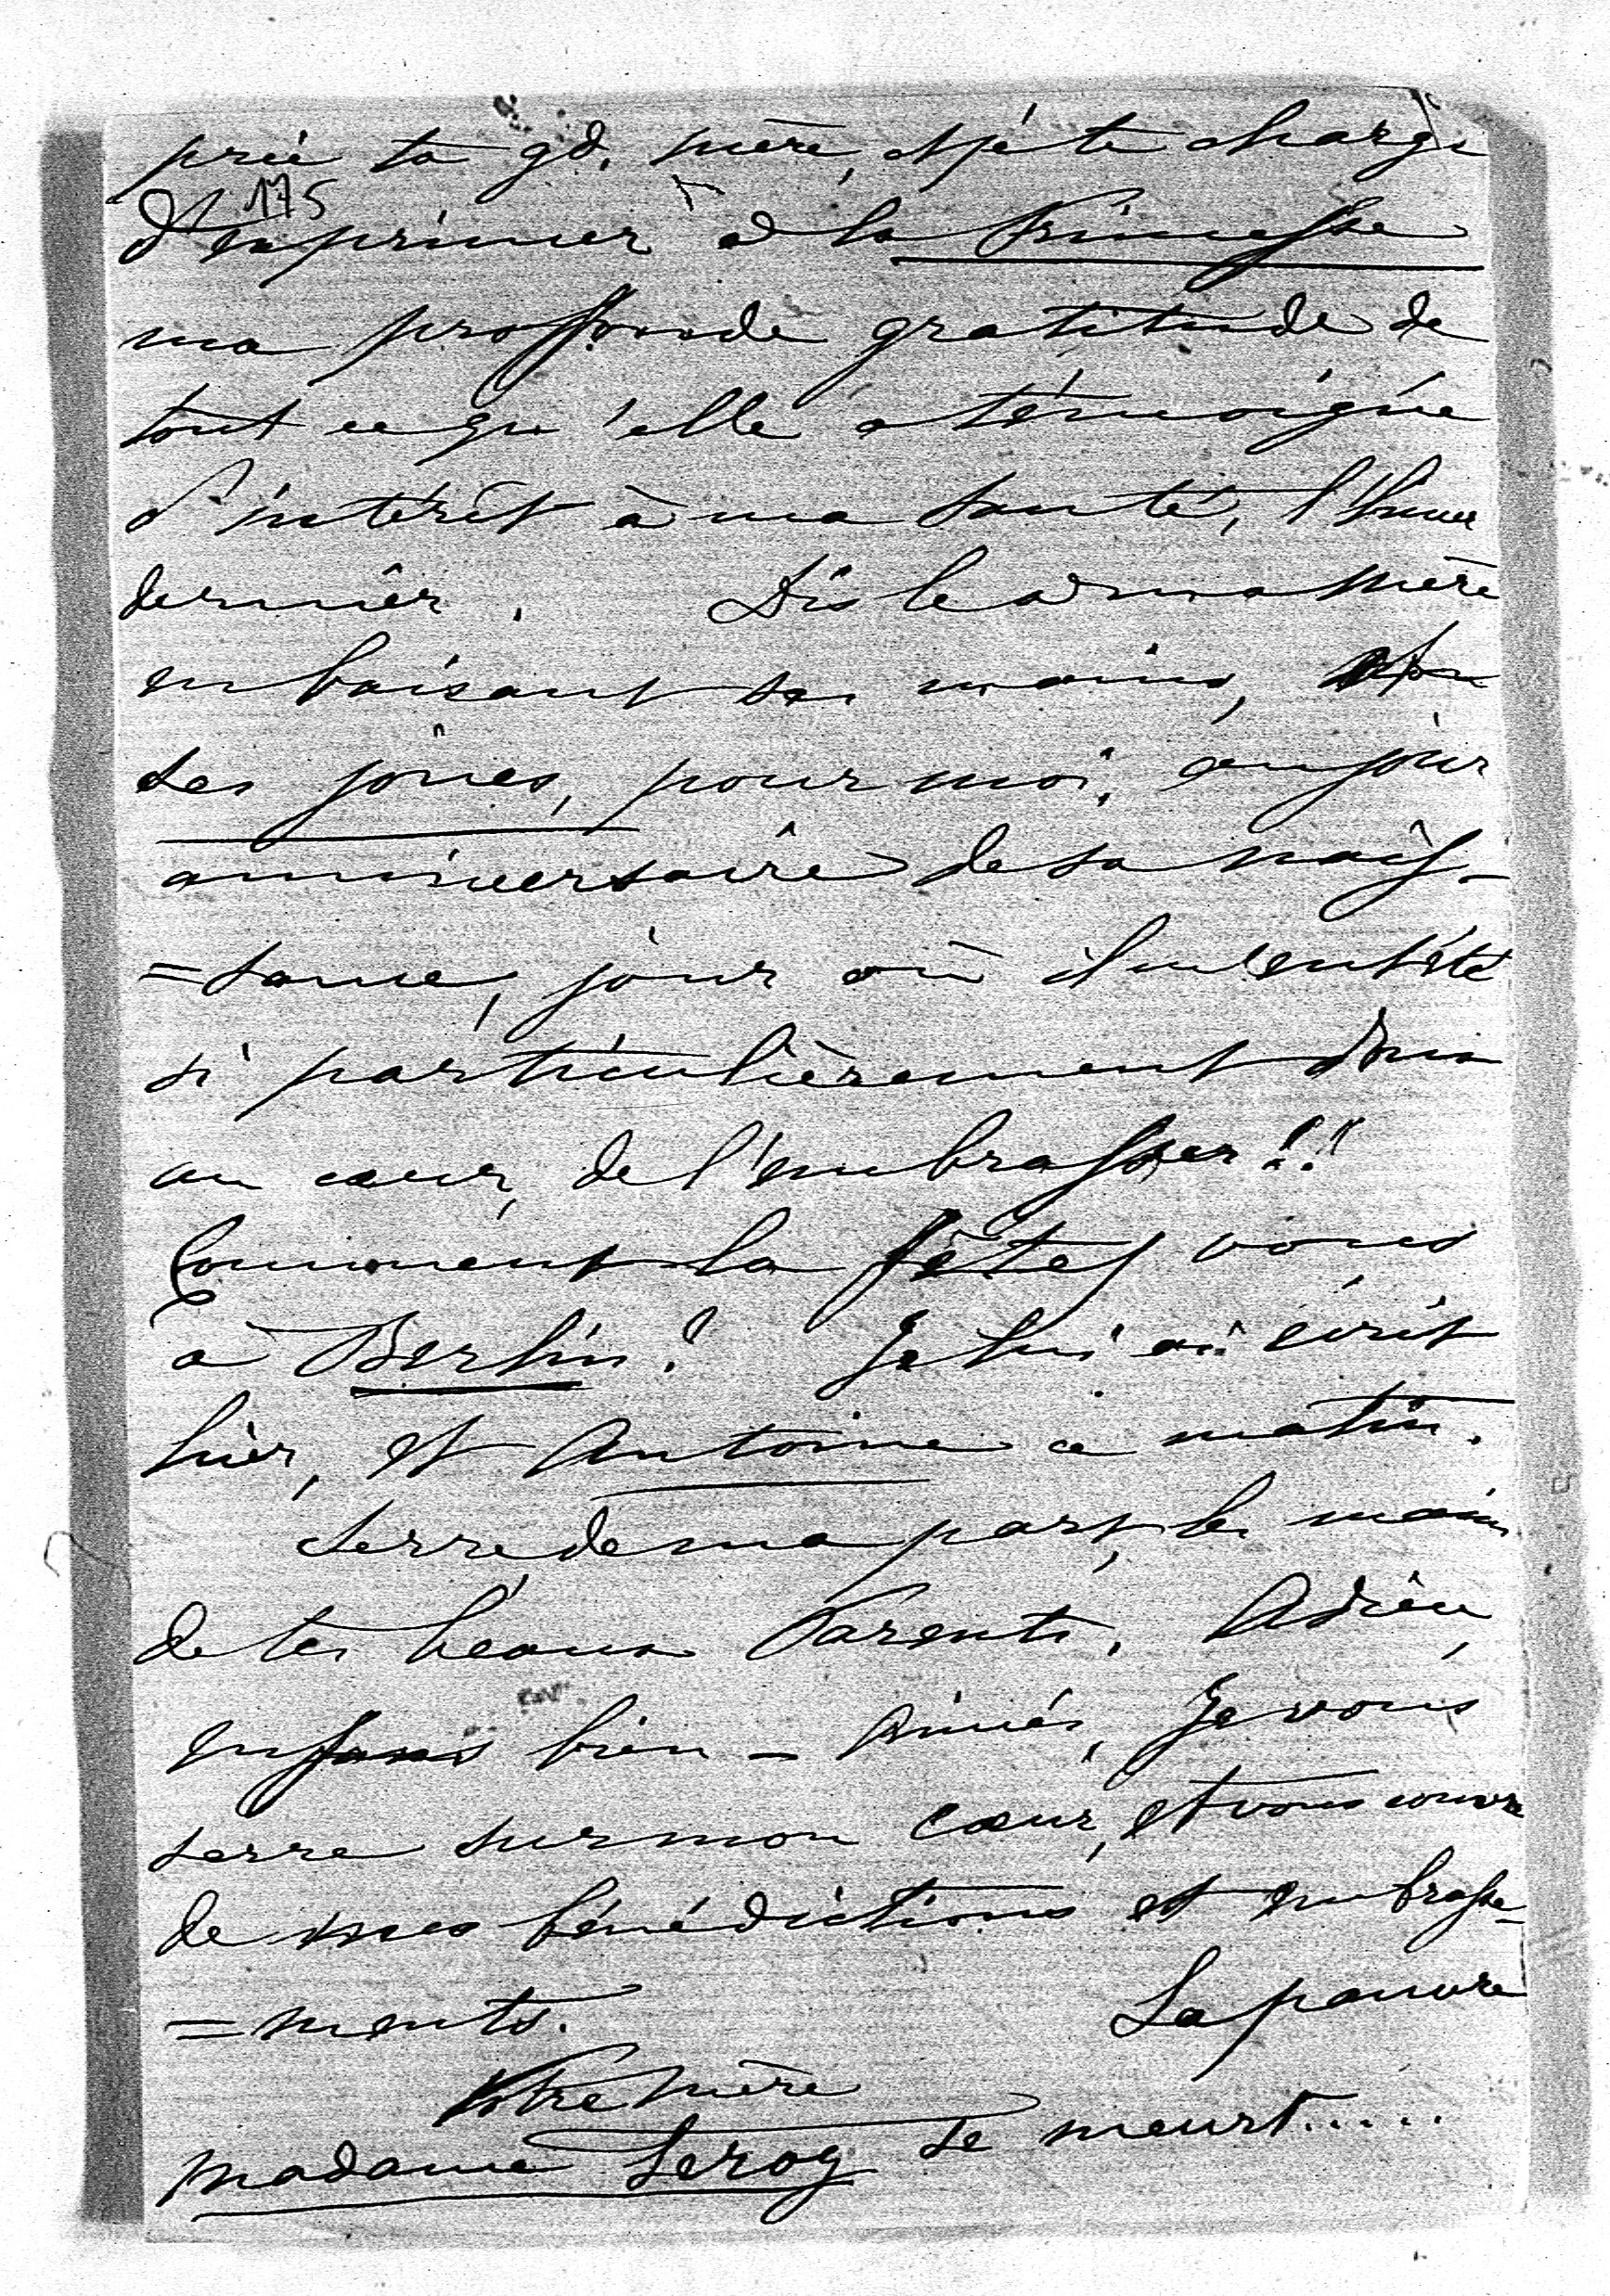 prié ta gd. mère, et je te charge
175
d'exprimer à la Princesse
ma profonde gratitude de
tout ce qu'elle a témoigné
d'intérêt à ma santé, l'hiver
dernier. Dis le à ma mère
en baisant ses mains,
ses joues, pour moi, au jour
anniversaire de sa naiss-
=sance, jour où il m'eut été
si particulièrement doux
au cœur, de l'embrasser!!
Comment la fêtez vous
à Berlin? Je lui ai écrit
hier, et Antoine ce matin.
Serre de ma part, les mains
de tes beaux Parents. Adieu,
enfans bien-aimés, Je vous
serre sur mon cœur, et vous couvre
de mes bénédictions et embrasse-
=ments. La pauvre
Votre mère
madame Leroy se meurt.....